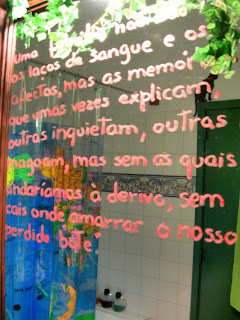 Uma
os laços de sangue e os
afectos, mas as memór
que umas vezes explicam,
outras inquietam, outras
magoam, mas sem as quais
andaríamos à deriva, sem
cais onde amarrar o nosso
perdido bote.